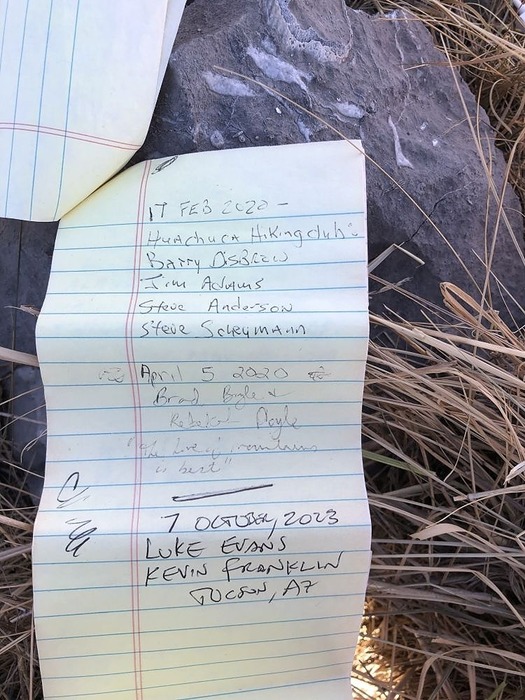 17 FEB 2020 -
Huachuca Hiking club
Barry
Jim Adams
Steve Anderson
Steve
April 5 2020
Brad &
Rebekah
"The love of mountains
is best"
7 OCTOBER, 2023
LUKE EVANS
KEVIN FRANKLIN
TUCSON, AZ